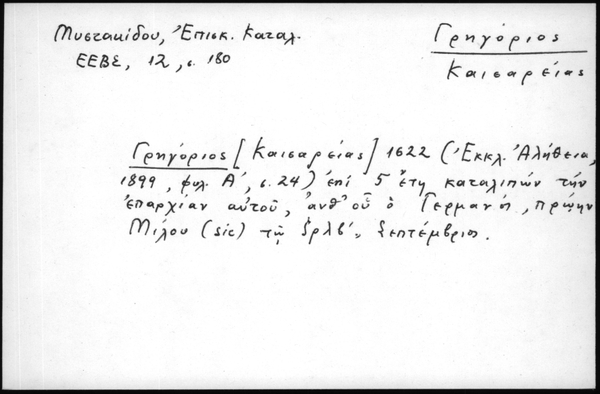 Μυστακίδου, Ἐπισκ. Καταλ.
ΕΕΒΣ, 12, σ. 180
Γρηγόριος
Καισαρείας
Γρηγόριος [Καισαρείας] 1622 (Ἐκκλ. Ἀλήθεια,
1899, φυλ. Α', σ. 24) ἐπί 5 ἔτη καταλιπών τήν
ἐπαρχίαν αὐτοῦ, ἀνθ' οὗ ὁ Γερμανός, πρώην
Μίλου (sic) τῷ ͵ζρλβ', Σεπτέμβριος.